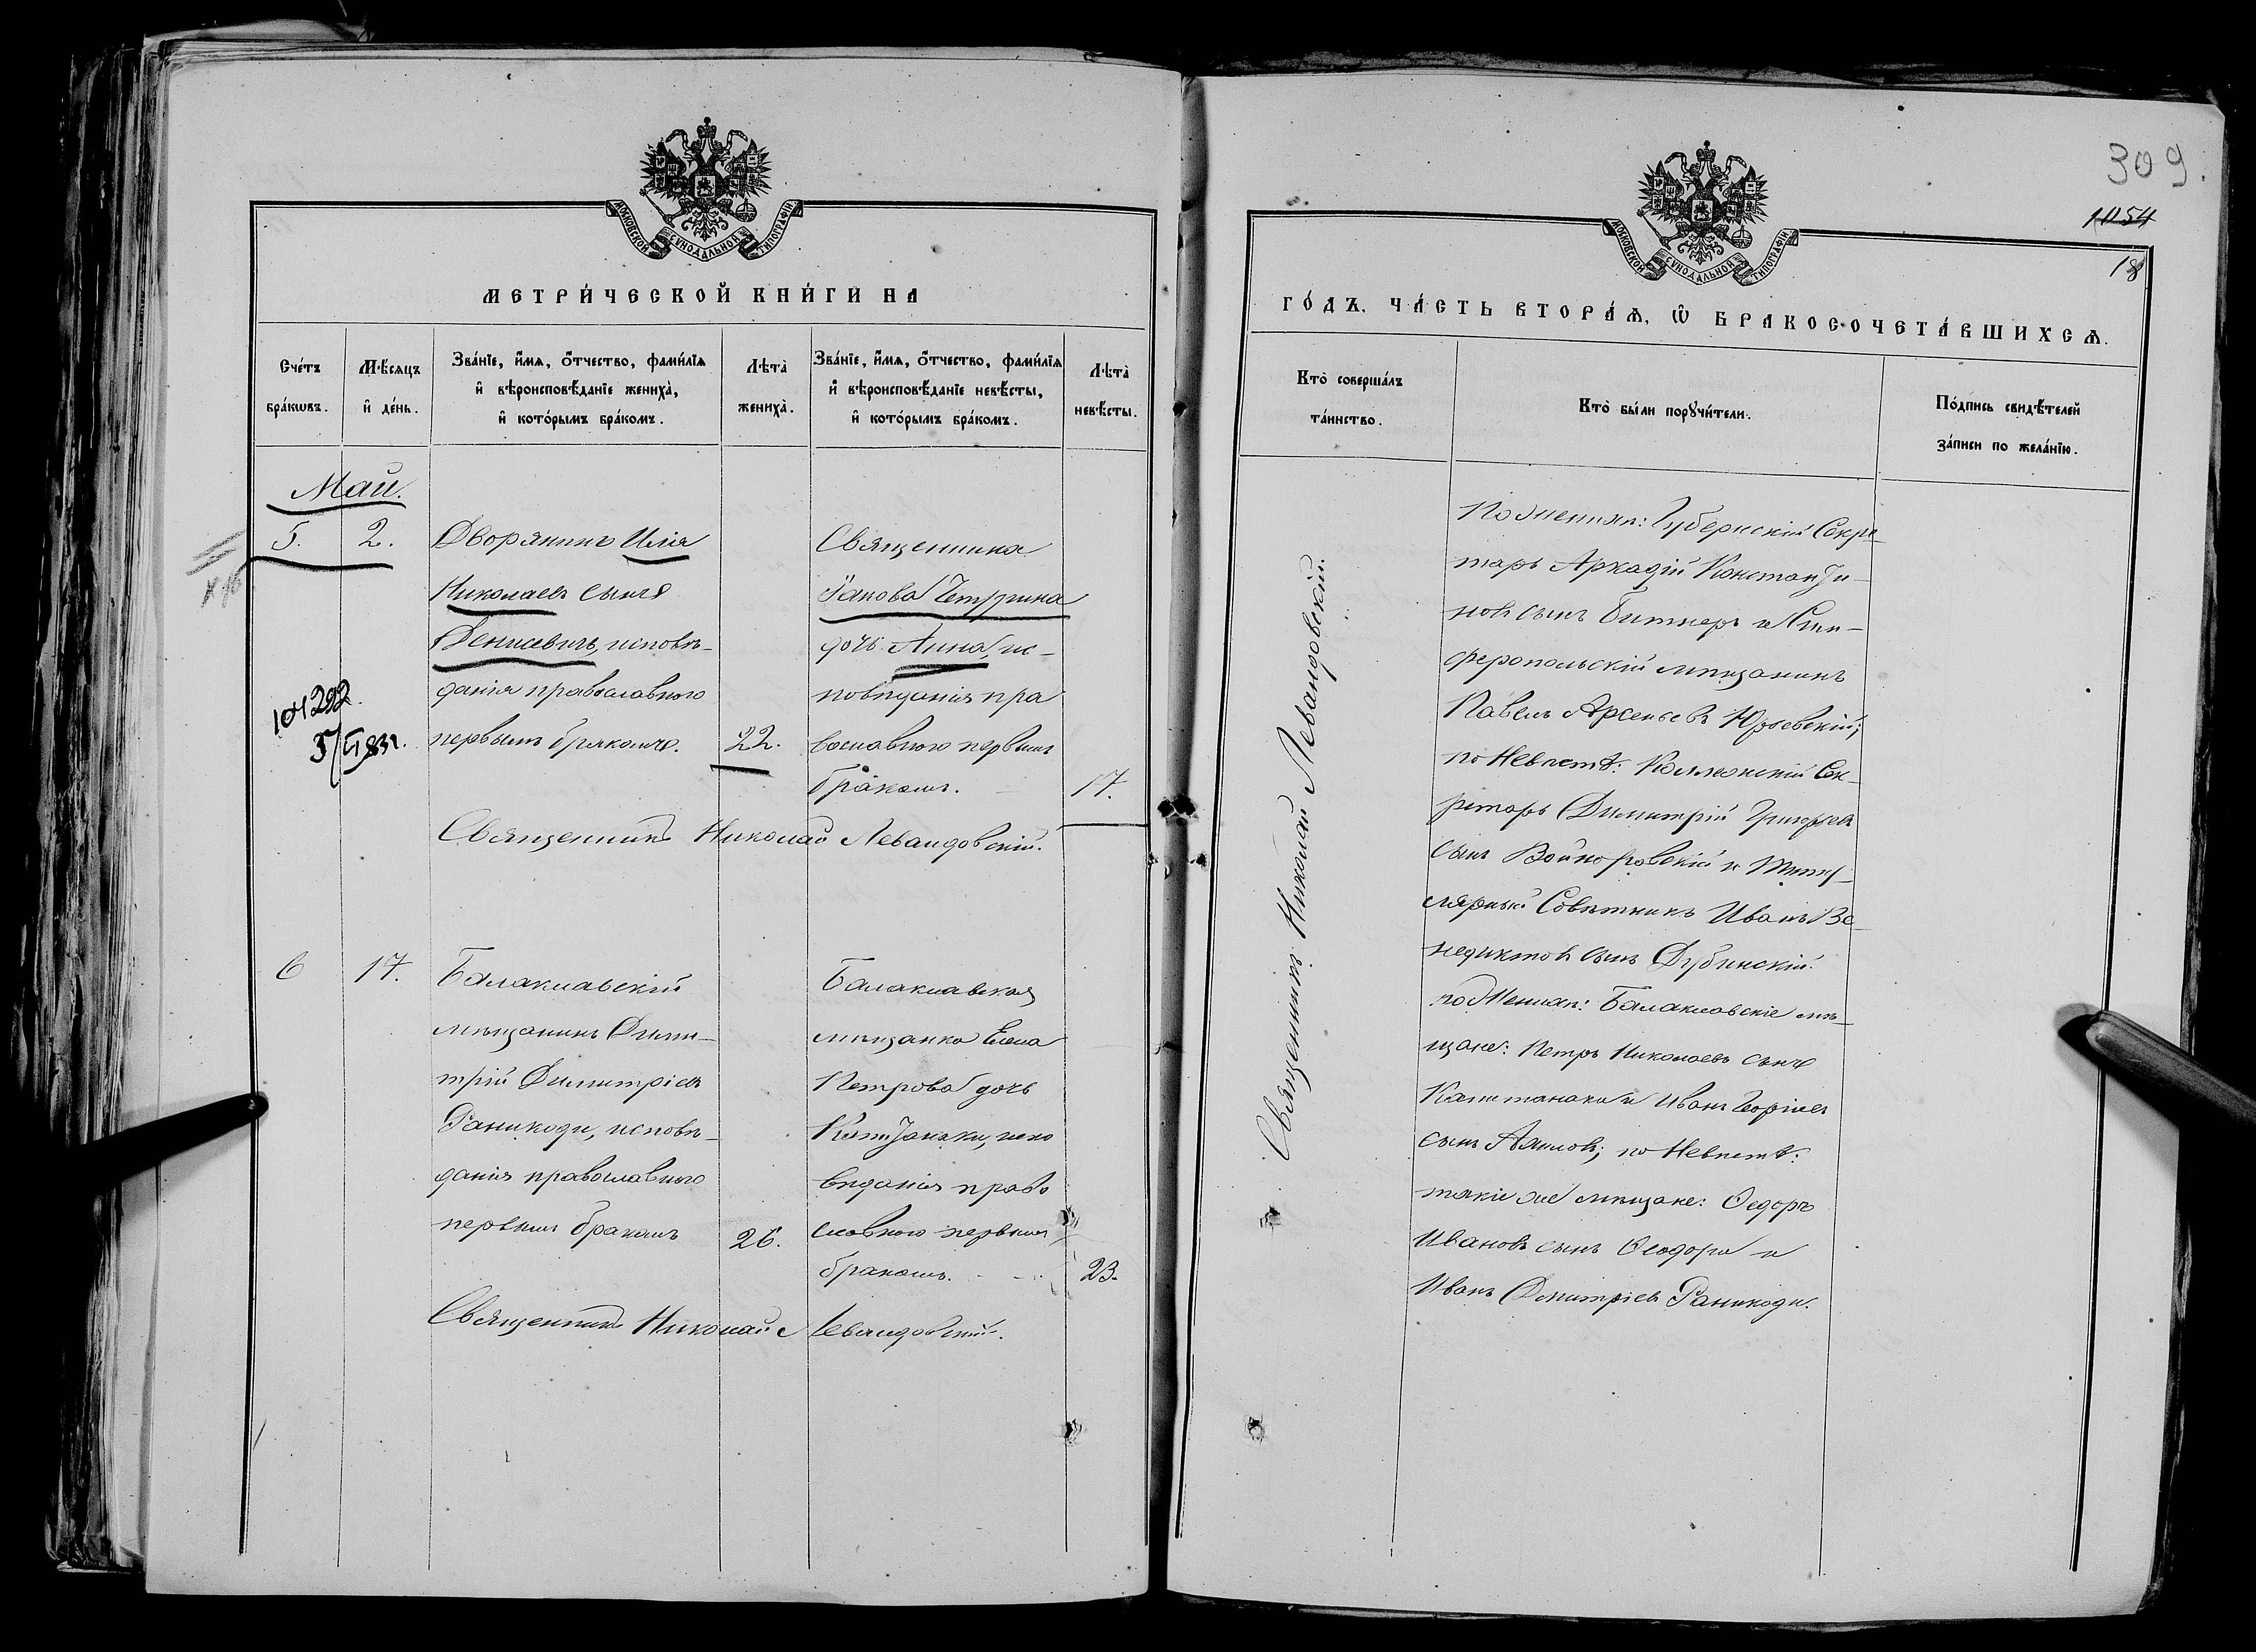 МОСКОВСКОЙ СУНОДАЛЬНОЙ ТИПОГРАФІИ
МЕТРИ́ЧЕСКОЙ КНИ́ГИ НА
Сче́тъ бра́кѡвъ.
Мѣ́сяцъ и҆ де́нь.
Зва́нїе, и҆́мя, ѻ҆́тчество, фами́лїя
и҆ вѣроисповѣ́данїе жениха̀,
и҆ кото́рымъ бра́комъ.
Лѣта̀ жениха̀.
Зва́нїе, и҆́мя, ѻ҆́тчество, фами́лїя
и҆ вѣроисповѣ́данїе невѣ́сты,
и҆ кото́рымъ бра́комъ.
Лѣта̀ невѣ́сты.
Май.
5.
2.
Дворянинъ Илія
Николаевъ сынъ
Денисевичъ, исповѣ-
данія православнаго
первымъ бракомъ.
22.
Священника
Іакова Четыркина
дочь Анна, ис-
повѣданія пра
вославнаго первымъ
бракомъ.
17.
Священникъ Николай Левандовскій.
6
17.
Балаклавскій
мѣщанинъ Дими-
трій Димитріевъ
Раникоди, исповѣ-
данія православнаго
первымъ бракомъ
26.
Балаклавская
мѣщанка Елена
Петрова дочь
Капитанаки, испо
вѣданія право
славнаго первымъ
бракомъ.
23.
Священникъ Николай Левандовскій.
309.
1054
18
МОСКОВСКОЙ СУНОДАЛЬНОЙ ТИПОГРАФІИ
ГО́ДЪ, ЧА́СТЬ ВТОРА́Ѧ, Ѽ БРАКОСОЧЕТА́ВШИХСѦ.
Кто̀ соверша́лъ
та́инство.
Кто̀ бы́ли порꙋчи́тели.
По́дпись свидѣ́телей
за́писи по жела́нїю.
Священникъ Николай Левандовскій.
По Женихѣ: Губернскій Секре-
тарь Аркадій Константи-
новъ сынъ Битнеръ и Сим-
феропольскій мѣщанинъ
Павелъ Арсеньевъ Юрьевскій;
по Невѣстѣ: Коллежскій Сек-
ретарь Димитрій Григорьевъ
сынъ Войноровскій и Титу-
лярный Совѣтникъ Иванъ Ве-
недиктовъ сынъ Дубинскій.
по Женихѣ: Балаклавскіе мѣ-
щане: Петръ Николаевъ сынъ
Капитанаки и Иванъ Георгіевъ
сынъ; по Невѣстѣ:
такіе же мѣщане: Ѳедоръ
Ивановъ сынъ Ѳеодори и
Иванъ Димитріевъ Раникоди.